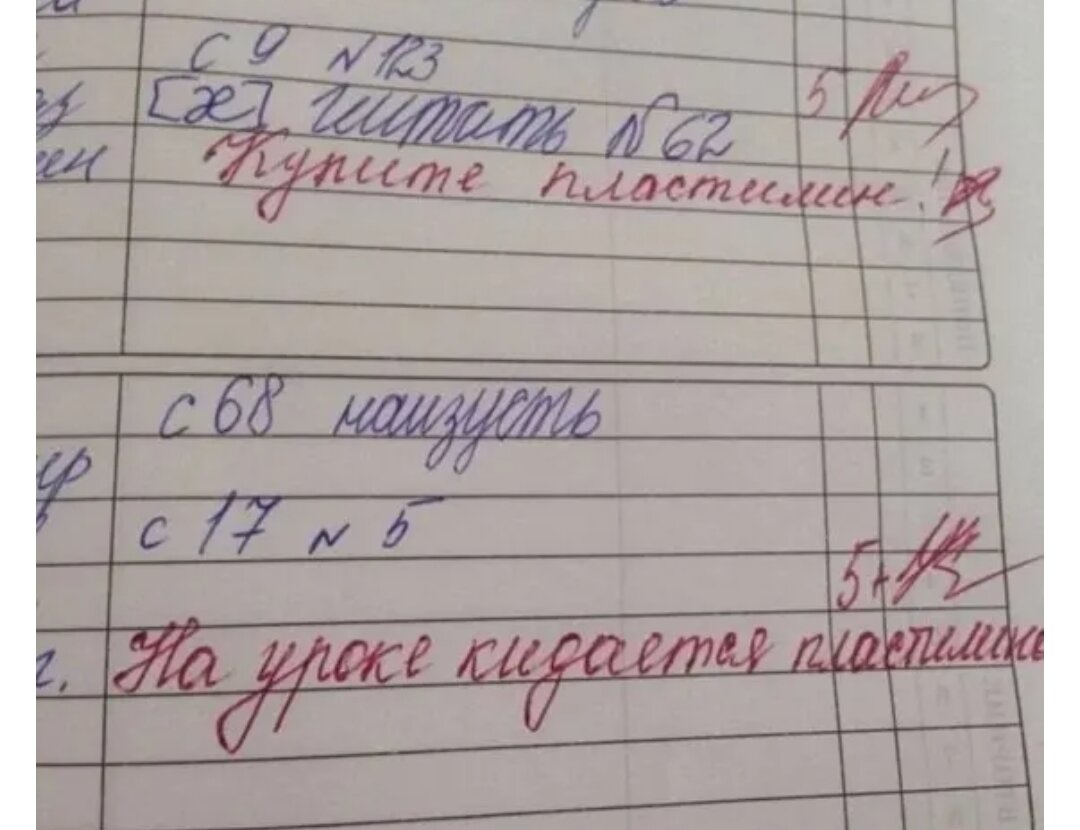 с 9 № 123
[æ] читать № 62 5
Купите пластилин!
с 68 наизусть
с 17 № 5
5+
На уроке кидается пластилино